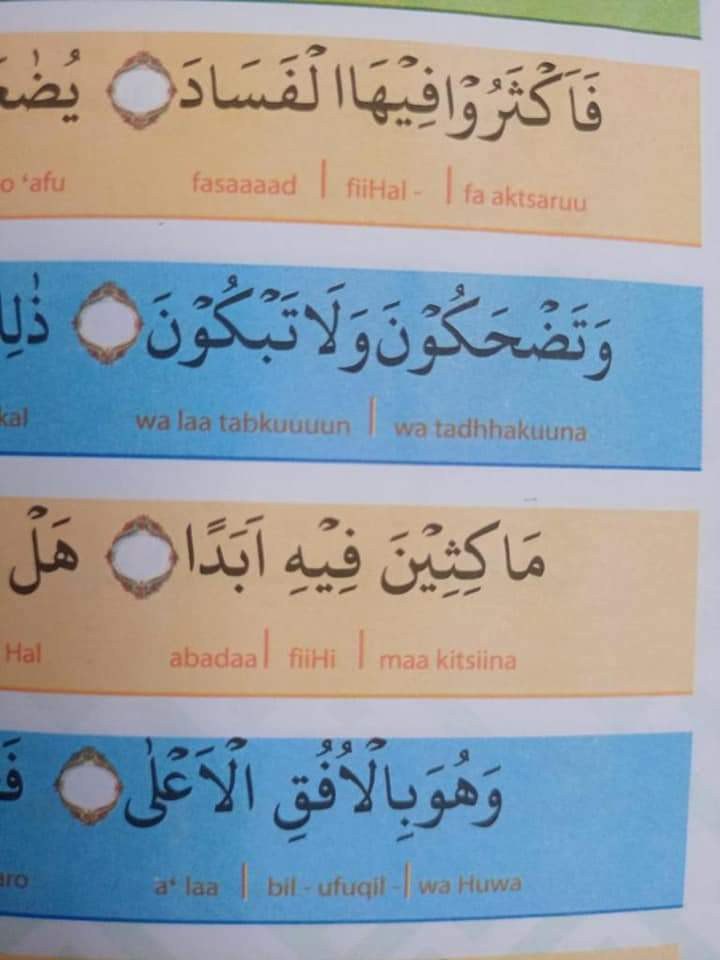 فَاَكْثَرُوْا فِيْهَا الْفَسَادَ
fasaaaad | fiiHal - | fa aktsaruu
وَتَضْحَكُوْنَ وَلَا تَبْكُوْنَ
wa laa tabkuuuun | wa tadhhakuuna
مَاكِثِيْنَ فِيْهِ اَبَدًا هَلْ
Hal abadaa | fiiHi | maa kitsiina
وَهُوَ بِالْاُفُقِ الْاَعْلٰى
a‘ laa | bil - ufuqil - | wa Huwa